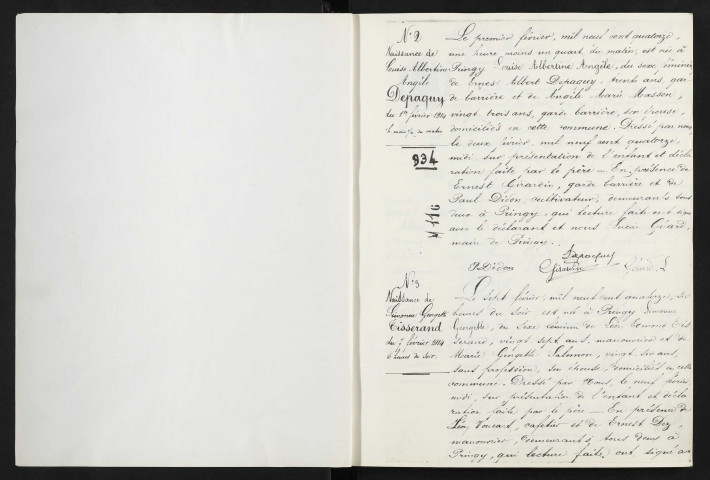 N° 2
Naissance de
Louise Albertine
Angèle
Depaquy
du 1er février 1914
934
N 116
Le premier février, mil neuf cent quatorze,
une heure moins un quart du matin, est née à
Pringy Louise Albertine Angèle, du sexe féminin
de Ernest Albert Depaquy, trente ans, garde
de barrière et de Angèle Marie Masson,
vingt trois ans, garde barrière, son épouse,
domiciliés en cette commune. Dressé par nous
le deux février, mil neuf cent quatorze,
midi, sur présentation de l'enfant et décla
ration faite par le père — En présence de
Ernest Girardin, garde barrière et de
Paul Didon, cultivateur, demeurants tous
deux à Pringy, qui lecture faite ont signé
avec le déclarant et nous Lucien Gérard,
maire de Pringy.
Depaquy
P. Didon Girardin Gérard L
N° 3
Naissance de
Simonne Georgette
Tisserand
du 7 février 1914
6 heures du soir.
Le sept février, mil neuf cent quatorze, six
heures du soir est née à Pringy Simonne
Georgette, du sexe féminin de Léon Edmond Tis
serand, vingt sept ans, manouvrier et de
Marie Georgette Salmon, vingt six ans,
sans profession, son épouse, domiciliés en cette
commune. Dressé par Nous, le neuf février
midi, sur présentation de l'enfant et décla
ration faite par le père — En présence de
Léon, cafetier et de Ernest Dez,
manouvrier, demeurants tous deux à
Pringy, qui lecture faite, ont signé av